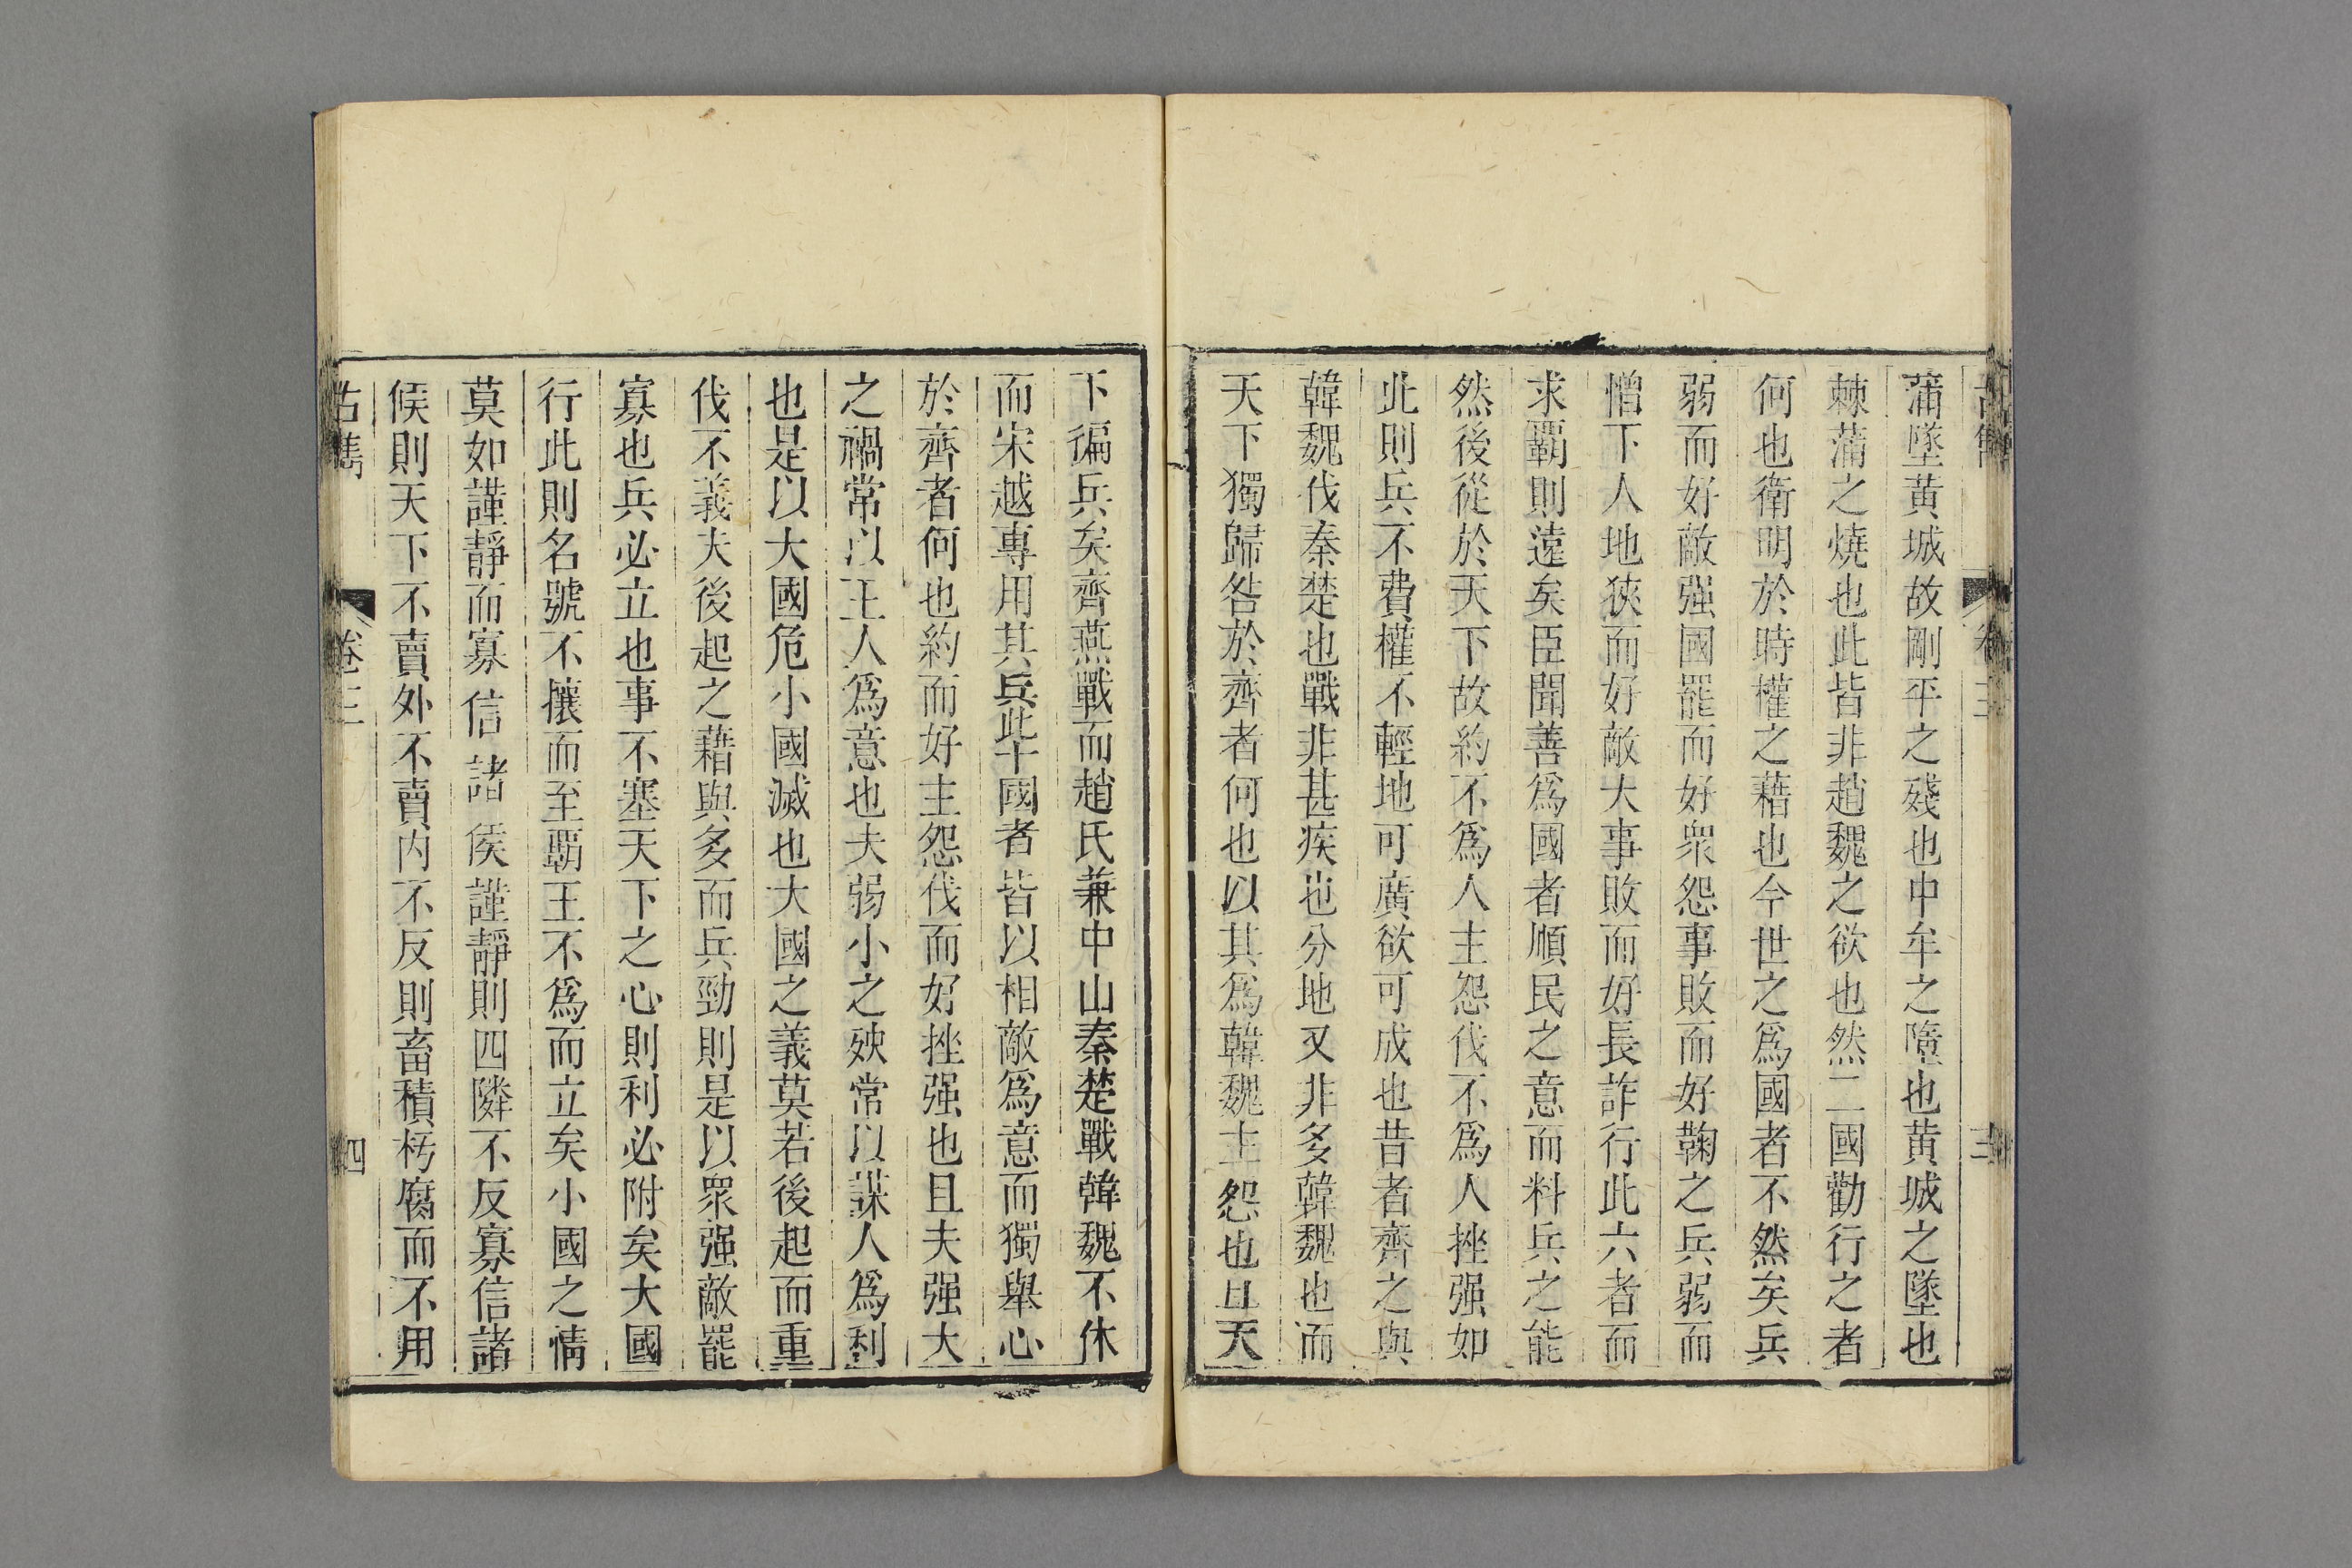 古雋 卷三 三
蒲墜黃城故剛平之殘也中牟之墮也黃城之墜也
棘蒲之燒也此皆非趙魏之欲也然二國勸行之者
何也衛明於時權之藉也今世之爲國者不然矣兵
弱而好敵强國罷而好衆怨事敗而好鞠之兵弱而
憎下人地狹而好敵大事敗而好長詐行此六者而
求覇則遠矣臣聞善爲國者順民之意而料兵之能
然後從於天下故約不爲人主怨伐不爲人挫强如
此則兵不費權不輕地可廣欲可成也昔者齊之與
韓魏伐秦楚也戰非甚疾也分地又非多韓魏也而
天下獨歸咎於齊者何也以其爲韓魏主怨也且天
下徧兵矣齊燕戰而趙氏兼中山秦楚戰韓魏不休
而宋越專用其兵此十國者皆以相敵爲意而獨舉心
於齊者何也約而好主怨伐而好挫强也且夫强大
之禍常以王人爲意也夫弱小之殃常以謀人爲利
也是以大國危小國滅也大國之義莫若後起而重
伐不義夫後起之藉與多而兵勁則是以衆强敵罷
寡也兵必立也事不塞天下之心則利必附矣大國
行此則名號不攘而至覇王不爲而立矣小國之情
莫如謹靜而寡信諸侯謹靜則四隣不反寡信諸
侯則天下不賣外不賣内不反則畜積朽腐而不用
古雋 卷三 四